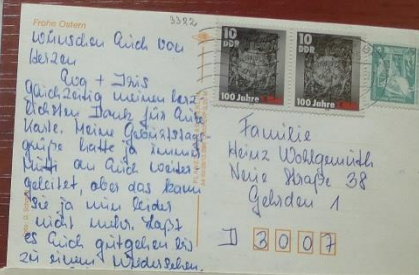 Frohe Ostern
3322
wünschen Euch von
Herzen
Eva + Iris
Gleichzeitig meinen herz-
lichsten Dank für Eure
Karte. Meine Geburtstags-
grüße hatte ja immer
Mutti an Euch weiter
geleitet, aber das kann
sie ja nun leider
nicht mehr. Laßt
es Euch gutgehen bis
zu einem Wiedersehen.
10
DDR
100 Jahre
10
DDR
100 Jahre
Familie
Heinz Wohlgemuth
Neue Straße 38
Gehrden 1
D 3007